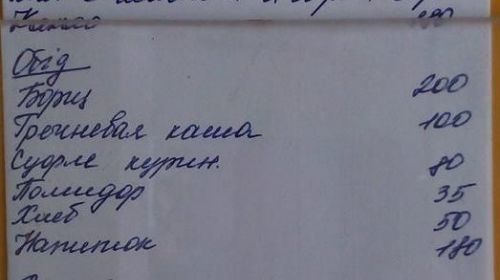 Какао
Обід
Борщ 200
Гречневая каша 100
Суфле курин. 80
Помидор 35
Хлеб 50
Напиток 180